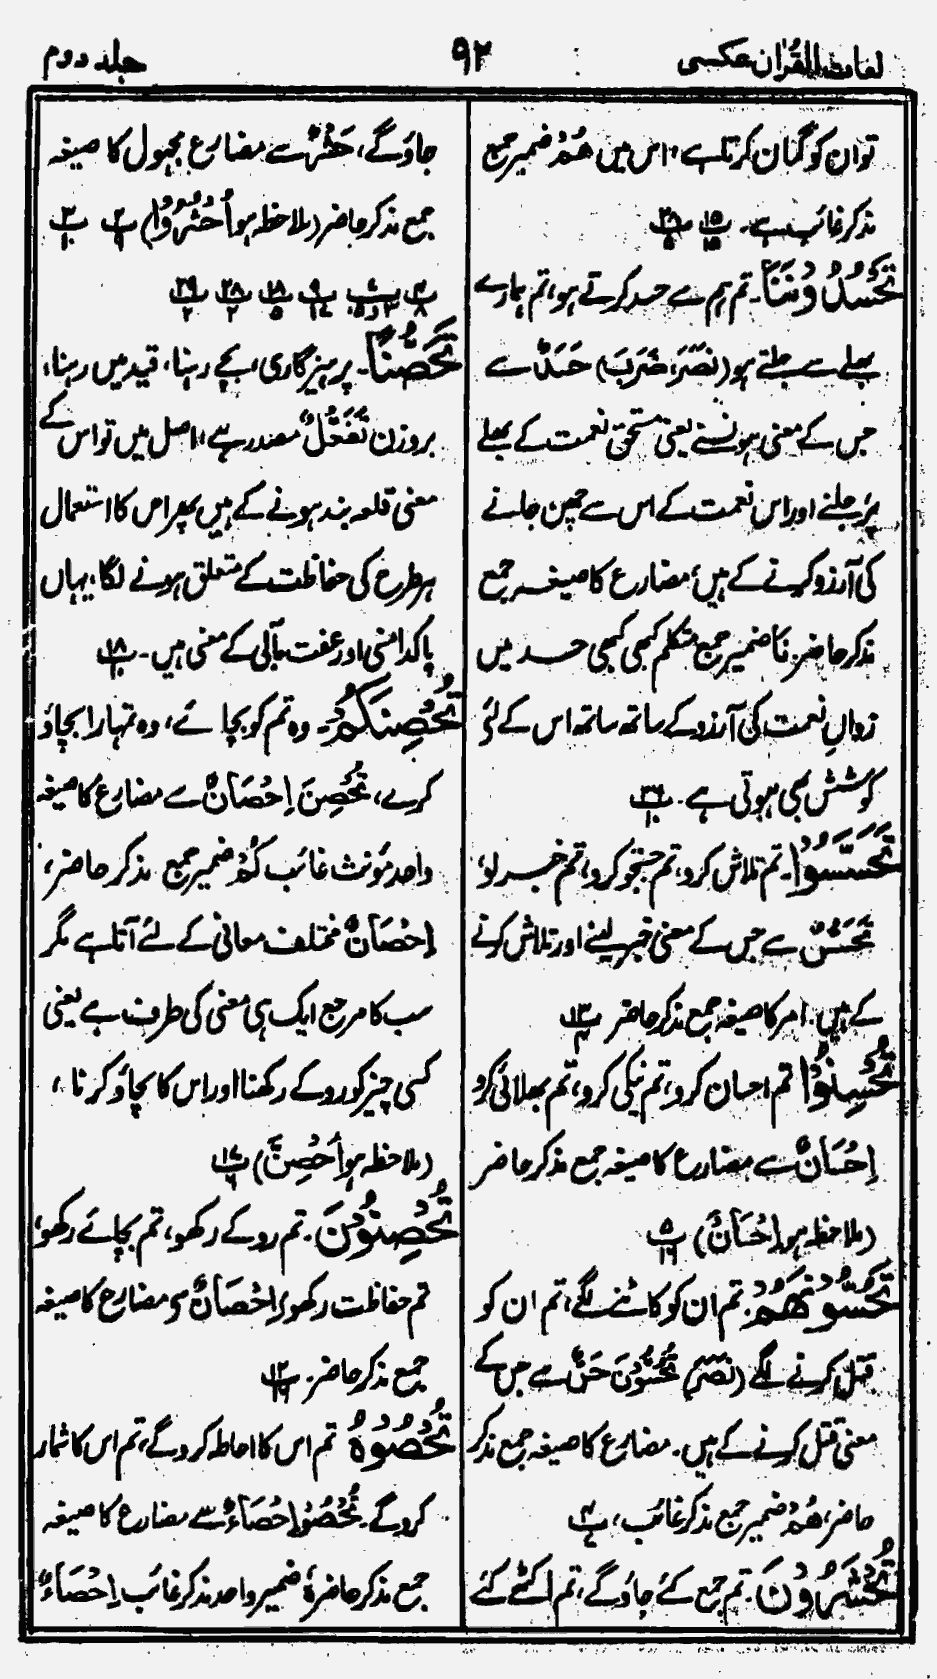 لغات القرآن عکسی
۹۲
جلد دوم
تو ان کو گمان کرتا ہے، اس میں ھُمْ ضمیر جمع
مذکر غائب ہے۔ پ ۱۵/۱۵ پ ۲۸/۵
تَحْسُدُوْنَنَا۔ تم ہم سے حسد کرتے ہو، تم ہمارے
بھلے سے جلتے ہو (نَصَرَ، ضَرَبَ) حَسَدٌ سے
جس کے معنی ہونے یعنی مستحق نعمت کے بھلے
پر جلنے اور اس نعمت کے اس سے چھن جانے
کی آرزو کرنے کے ہیں، مضارع کا صیغہ جمع
مذکر حاضر. نَا ضمیر جمع متکلم کبھی کبھی حسد میں
زوالِ نعمت کی آرزو کے ساتھ ساتھ اس کے لئے
کوشش بھی ہوتی ہے۔ پ ۲۶/۱۰
تَحَسَّسُوْا۔ تم تلاش کرو، تم جستجو کرو، تم خبر لو،
تَحَسُّسٌ سے جس کے معنی خبر لینے اور تلاش کرنے
کے ہیں۔ امر کا صیغہ جمع مذکر حاضر پ ۱۳/۴
تُحْسِنُوْا تم احسان کرو، تم نیکی کرو، تم بھلائی کرو
اِحْسَانٌ سے مضارع کا صیغہ جمع مذکر حاضر
(ملاحظہ ہو اِحْسَانٌ) پ ۵/۱۶
تَحُسُّوْنَھُمْ. تم ان کو کاٹنے لگے، تم ان کو
قتل کرنے لگے (نَصَرَ) تَحُسُّوْنَ حَسٌّ سے جس کے
معنی قتل کرنے کے ہیں. مضارع کا صیغہ جمع مذکر
حاضر، ھُمْ ضمیر جمع مذکر غائب، پ ۴
تُحْشَرُوْنَ. تم جمع کئے جاؤ گے، تم اکٹھے کئے
جاؤ گے، حَشْرٌ سے مضارع مجہول کا صیغہ
جمع مذکر حاضر (ملاحظہ ہو اُحْشُرُوْا) پ ۲/۹ پ ۳/۱۰
پ ۴/۸ پ پ ۹/۱۷ پ ۱۸/۵ پ ۲۸/۲ پ ۲۹/۲
تَحَصُّنًا۔ پرہیزگاری، بچے رہنا، قید میں رہنا،
بروزن تَفَعُّلٌ مصدر ہے، اصل میں تو اس کے
معنی قلعہ بند ہونے کے ہیں پھر اس کا استعمال
ہر طرح کی حفاظت کے متعلق ہونے لگا، یہاں
پاکدامنی اور عفت مآبی کے معنی ہیں۔ پ ۱۸
تُحْصِنَکُمْ۔ وہ تم کو بچائے، وہ تمہارا بچاؤ
کرے، تُحْصِنَ اِحْصَانٌ سے مضارع کا صیغہ
واحد مؤنث غائب کُمْ ضمیر جمع مذکر حاضر،
اِحْصَانٌ مختلف معانی کے لئے آتا ہے مگر
سب کا مرجع ایک ہی معنی کی طرف ہے یعنی
کسی چیز کو روکے رکھنا اور اس کا بچاؤ کرنا،
(ملاحظہ ہو اُحْصِنَّ) پ ۱۷/۶
تُحْصِنُوْنَ. تم روکے رکھو، تم بچائے رکھو،
تم حفاظت رکھو، اِحْصَانٌ سے مضارع کا صیغہ
جمع مذکر حاضر. پ ۱۲/۱۶
تُحْصُوْهُ تم اس کا احاطہ کرو گے، تم اس کا شمار
کرو گے. تُحْصُوْ اِحْصَاءٌ سے مضارع کا صیغہ
جمع مذکر حاضر هُ ضمیر واحد مذکر غائب اِحْصَاءٌ